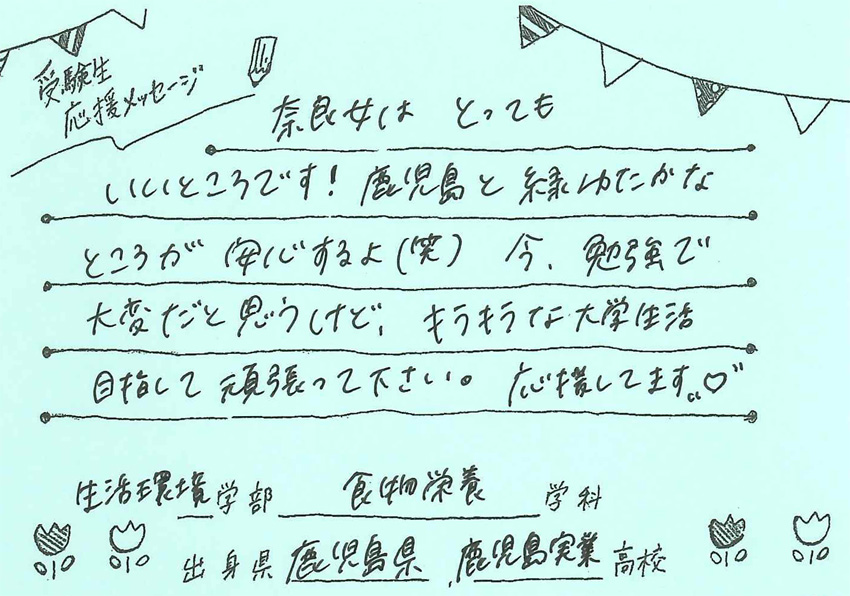 受験生
応援メッセージ
奈良女は とっても
いいところです！鹿児島と 緑ゆたかな
ところが 安心するよ(笑) 今、勉強で
大変だと思うけど、キラキラな大学生活
目指して 頑張って下さい。 応援してます♡
生活環境学部 食物栄養 学科
出身県 鹿児島県 鹿児島実業 高校